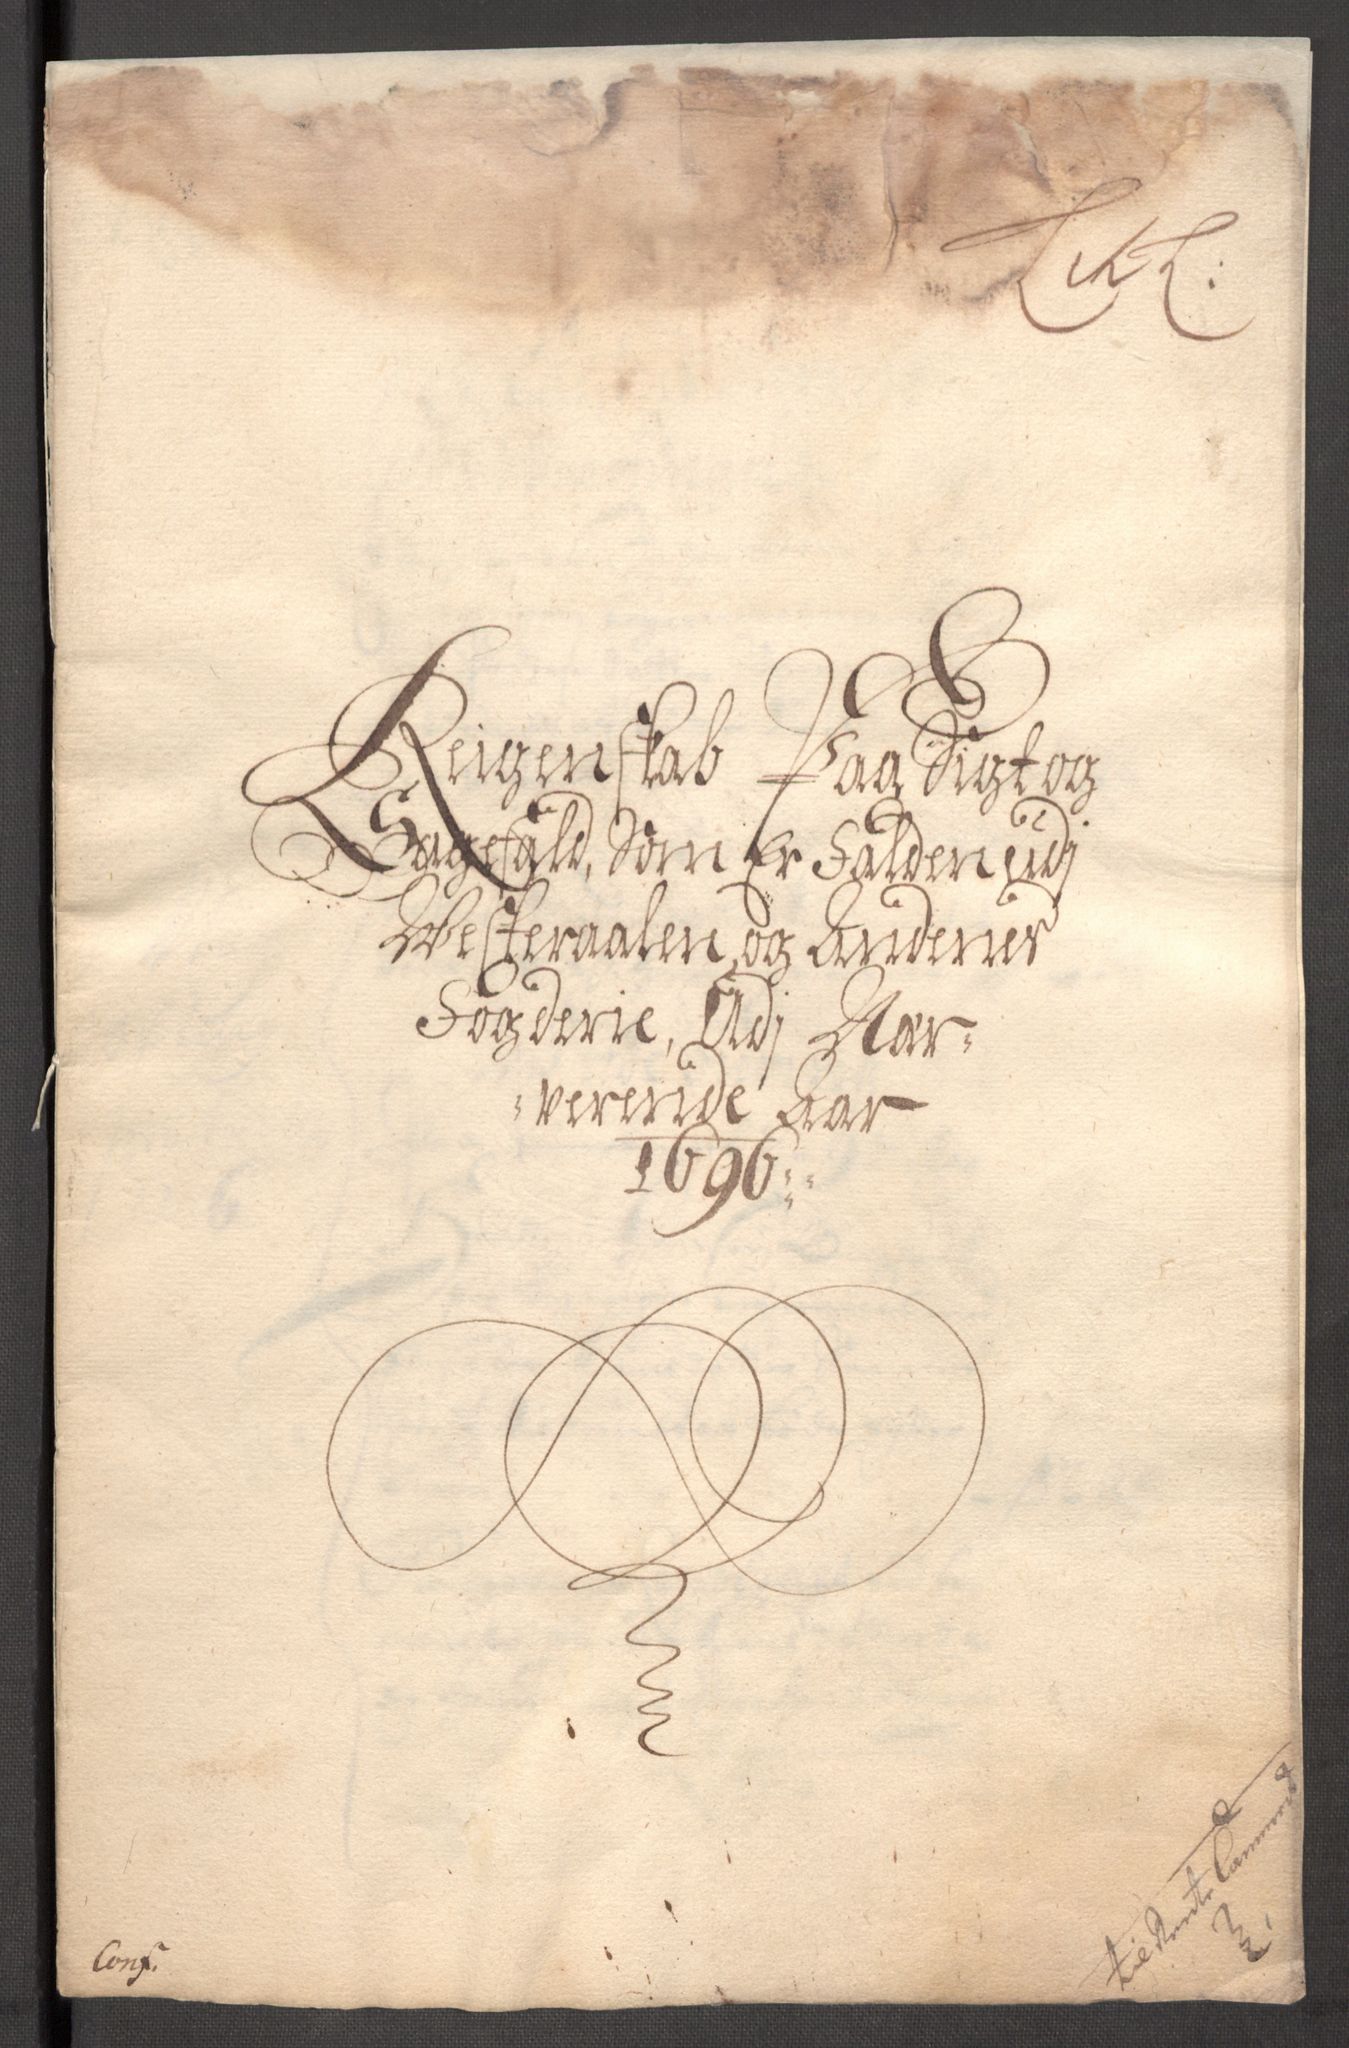 Reigenskab Paa Sigt og
Sagefald, Som Er Falden udj
Westeraalen og Andenes
Fogderie, Udj Nær-
-verende Aar
1696
Til Rente Cammeret
Conf.